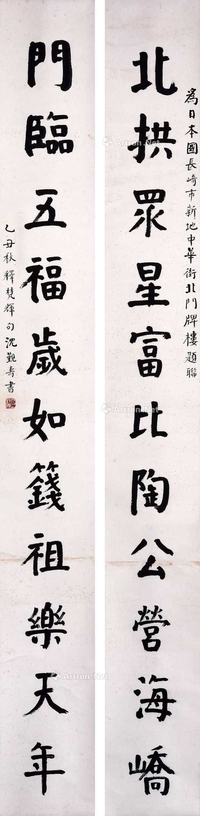 為日本國長崎市新地中華街北門牌樓題聯
北拱眾星富比陶公營海嶠
門臨五福歲如籛祖樂天年
乙丑秋釋慧輝句沈覲壽書